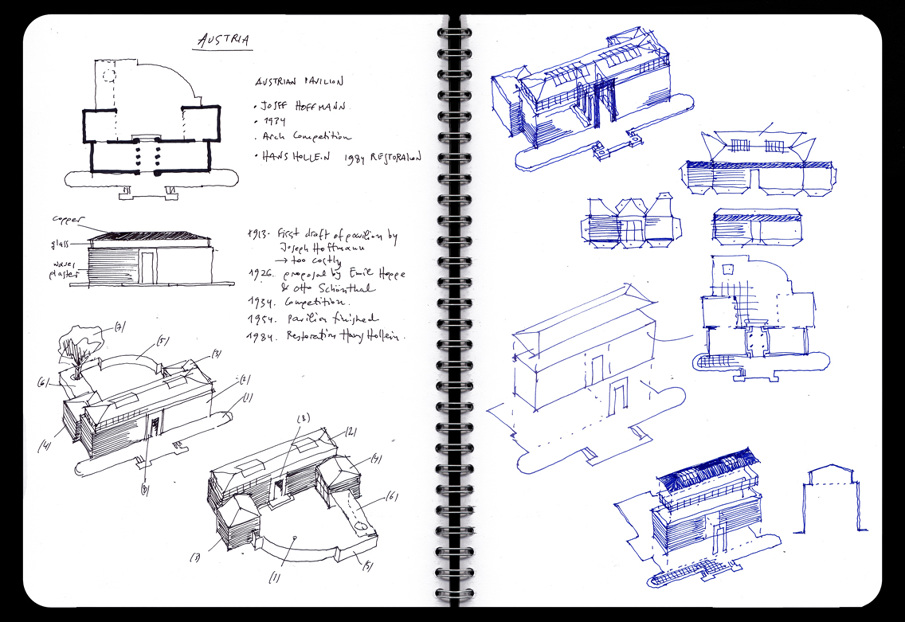 AUSTRIA
AUSTRIAN PAVILION
• JOSEF HOFFMANN
• 1934
• Arch Competition
• HANS HOLLEIN 1984 RESTORATION
copper
glass
plaster
1913. First draft of pavilion by
Joseph Hoffmann
→ too costly
1926. proposal by Emil Hoppe
& Otto Schönthal
1934. Competition.
1954. pavilion finished
1984. Restoration Hans Hollein.
(7)
(5)
(3)
(6)
(2)
(1)
(4)
(8)
(8)
(2)
(4)
(6)
(3)
(1)
(5)